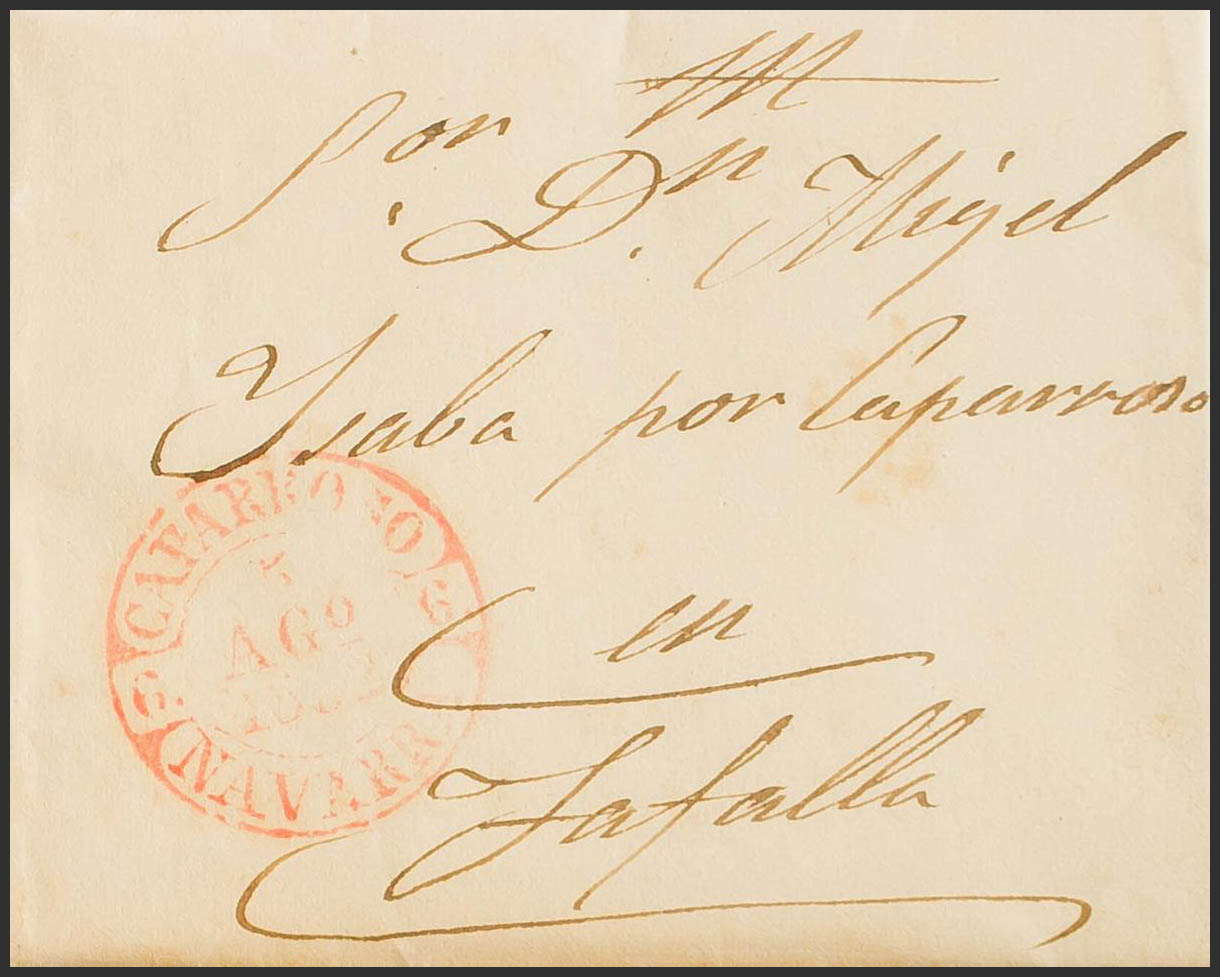 Sor. Dn. Migel
Ysaba por Caparroso
en
Tafalla
CAPARROSO
AGO
NAVARR